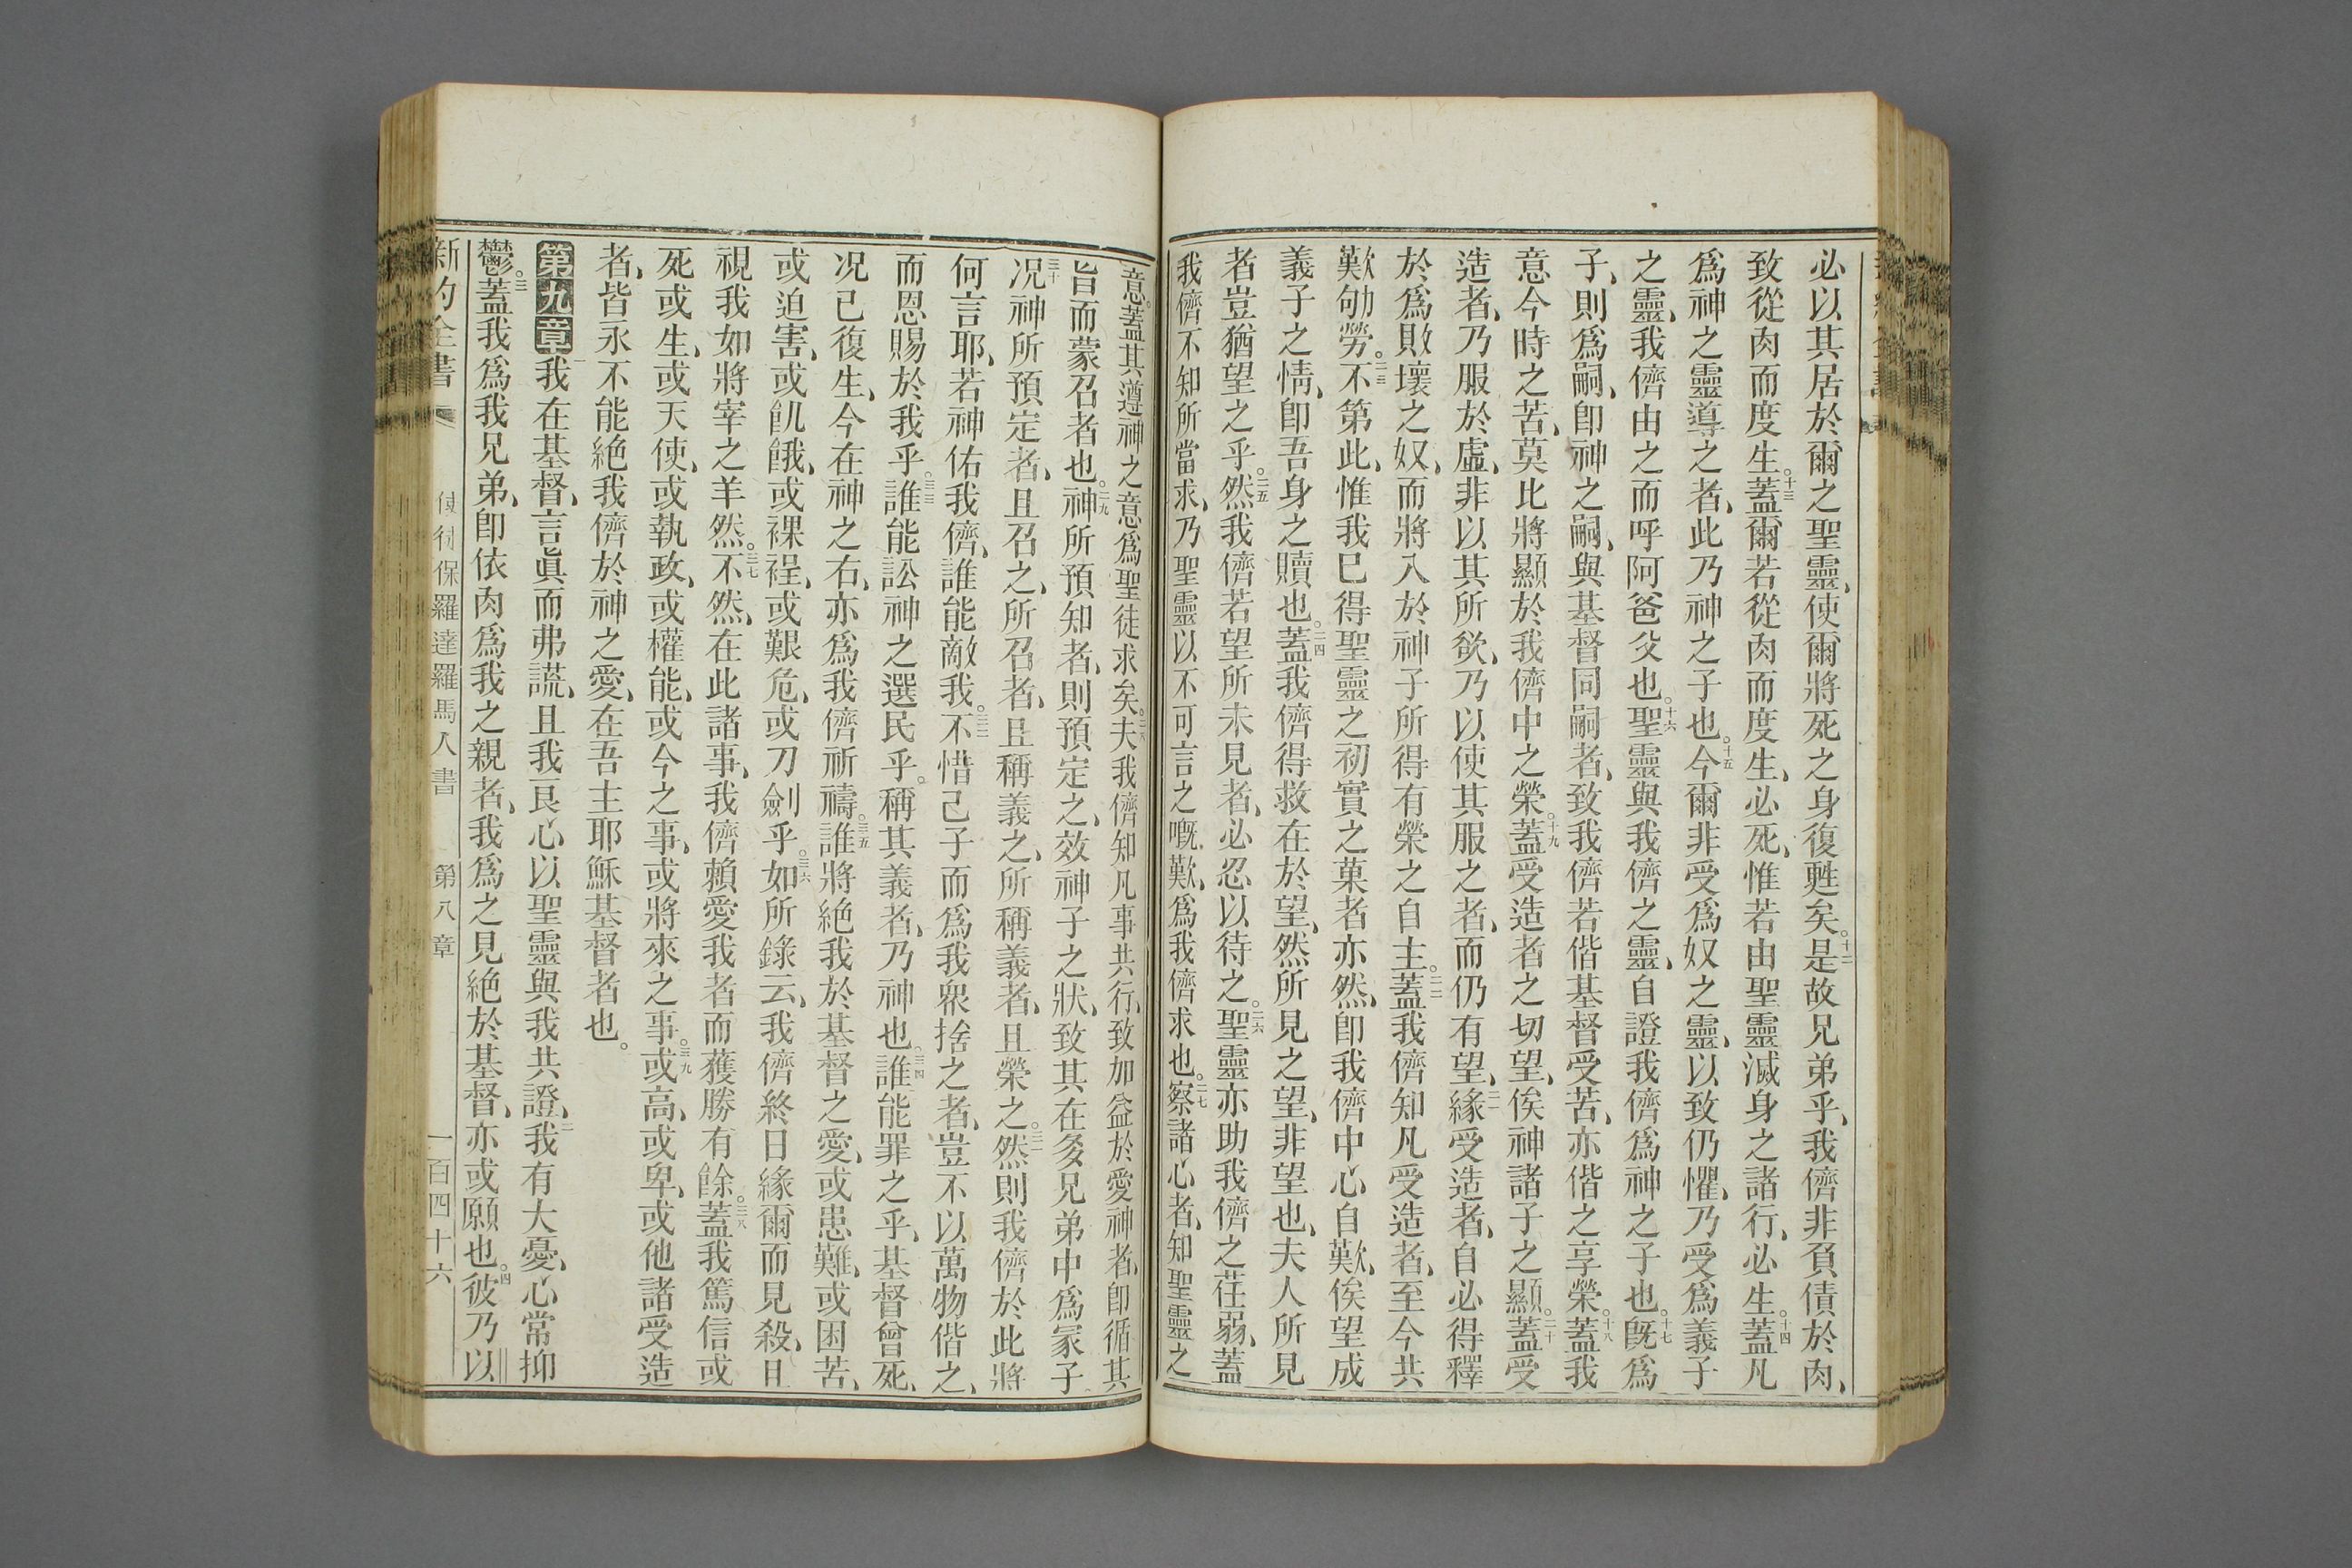 必以其居於爾之聖靈、使爾將死之身復甦矣。十二是故兄弟乎、我儕非負債於肉、
致從肉而度生。十三蓋爾若從肉而度生、必死、惟若由聖靈滅身之諸行、必生。十四蓋凡
爲神之靈導之者、此乃神之子也。十五今爾非受爲奴之靈、以致仍懼、乃受爲義子
之靈、我儕由之而呼阿爸父也。十六聖靈與我儕之靈、自證我儕爲神之子也。十七既爲
子、則爲嗣、卽神之嗣、與基督同嗣者、致我儕若偕基督受苦、亦偕之享榮。十八蓋我
意今時之苦、莫比將顯於我儕中之榮。十九蓋受造者之切望、俟神諸子之顯。二十蓋受
造者、乃服於虛、非以其所欲、乃以使其服之者、而仍有望、二一緣受造者、自必得釋
於爲敗壞之奴、而將入於神子所得有榮之自主。二二蓋我儕知凡受造者、至今共
歎劬勞。二三不第此、惟我已得聖靈之初實之菓者亦然、卽我儕中心自歎、俟望成
義子之情、卽吾身之贖也。二四蓋我儕得救在於望、然所見之望、非望也、夫人所見
者豈猶望之乎。二五然我儕若望所未見者、必忍以待之。二六聖靈亦助我儕之荏弱、蓋
我儕不知所當求、乃聖靈以不可言之嘅歎、爲我儕求也。二七察諸心者、知聖靈之
意。蓋其遵神之意爲聖徒求矣。二八夫我儕知凡事共行、致加益於愛神者、卽循其
旨而蒙召者也。二九神所預知者、則預定之、效神子之狀、致其在多兄弟中爲冢子
三十况神所預定者、且召之、所召者、且稱義之、所稱義者、且榮之。三一然則我儕於此將
何言耶、若神佑我儕、誰能敵我。三二不惜己子而爲我衆捨之者、豈不以萬物偕之、
而恩賜於我乎。三三誰能訟神之選民乎。稱其義者、乃神也。三四誰能罪之乎、基督曾死、
况已復生、今在神之右、亦爲我儕祈禱。三五誰將絶我於基督之愛、或患難、或困苦、
或迫害、或飢餓、或裸裎、或艱危、或刀劍乎。三六如所錄云、我儕終日緣爾而見殺、且
視我如將宰之羊然。三七不然、在此諸事、我儕賴愛我者而獲勝有餘。三八蓋我篤信或
死或生、或天使、或執政、或權能、或今之事、或將來之事。三九或高、或卑、或他諸受造
者、皆永不能絶我儕於神之愛、在吾主耶穌基督者也。
第九章一我在基督、言眞而弗謊、且我艮心以聖靈與我共證、二我有大憂、心常抑
鬱。三蓋我爲我兄弟、卽依肉爲我之親者、我爲之見絶於基督、亦或願也。四彼乃以
新約全書 使徒保羅達羅馬人書 第八章 一百四十六